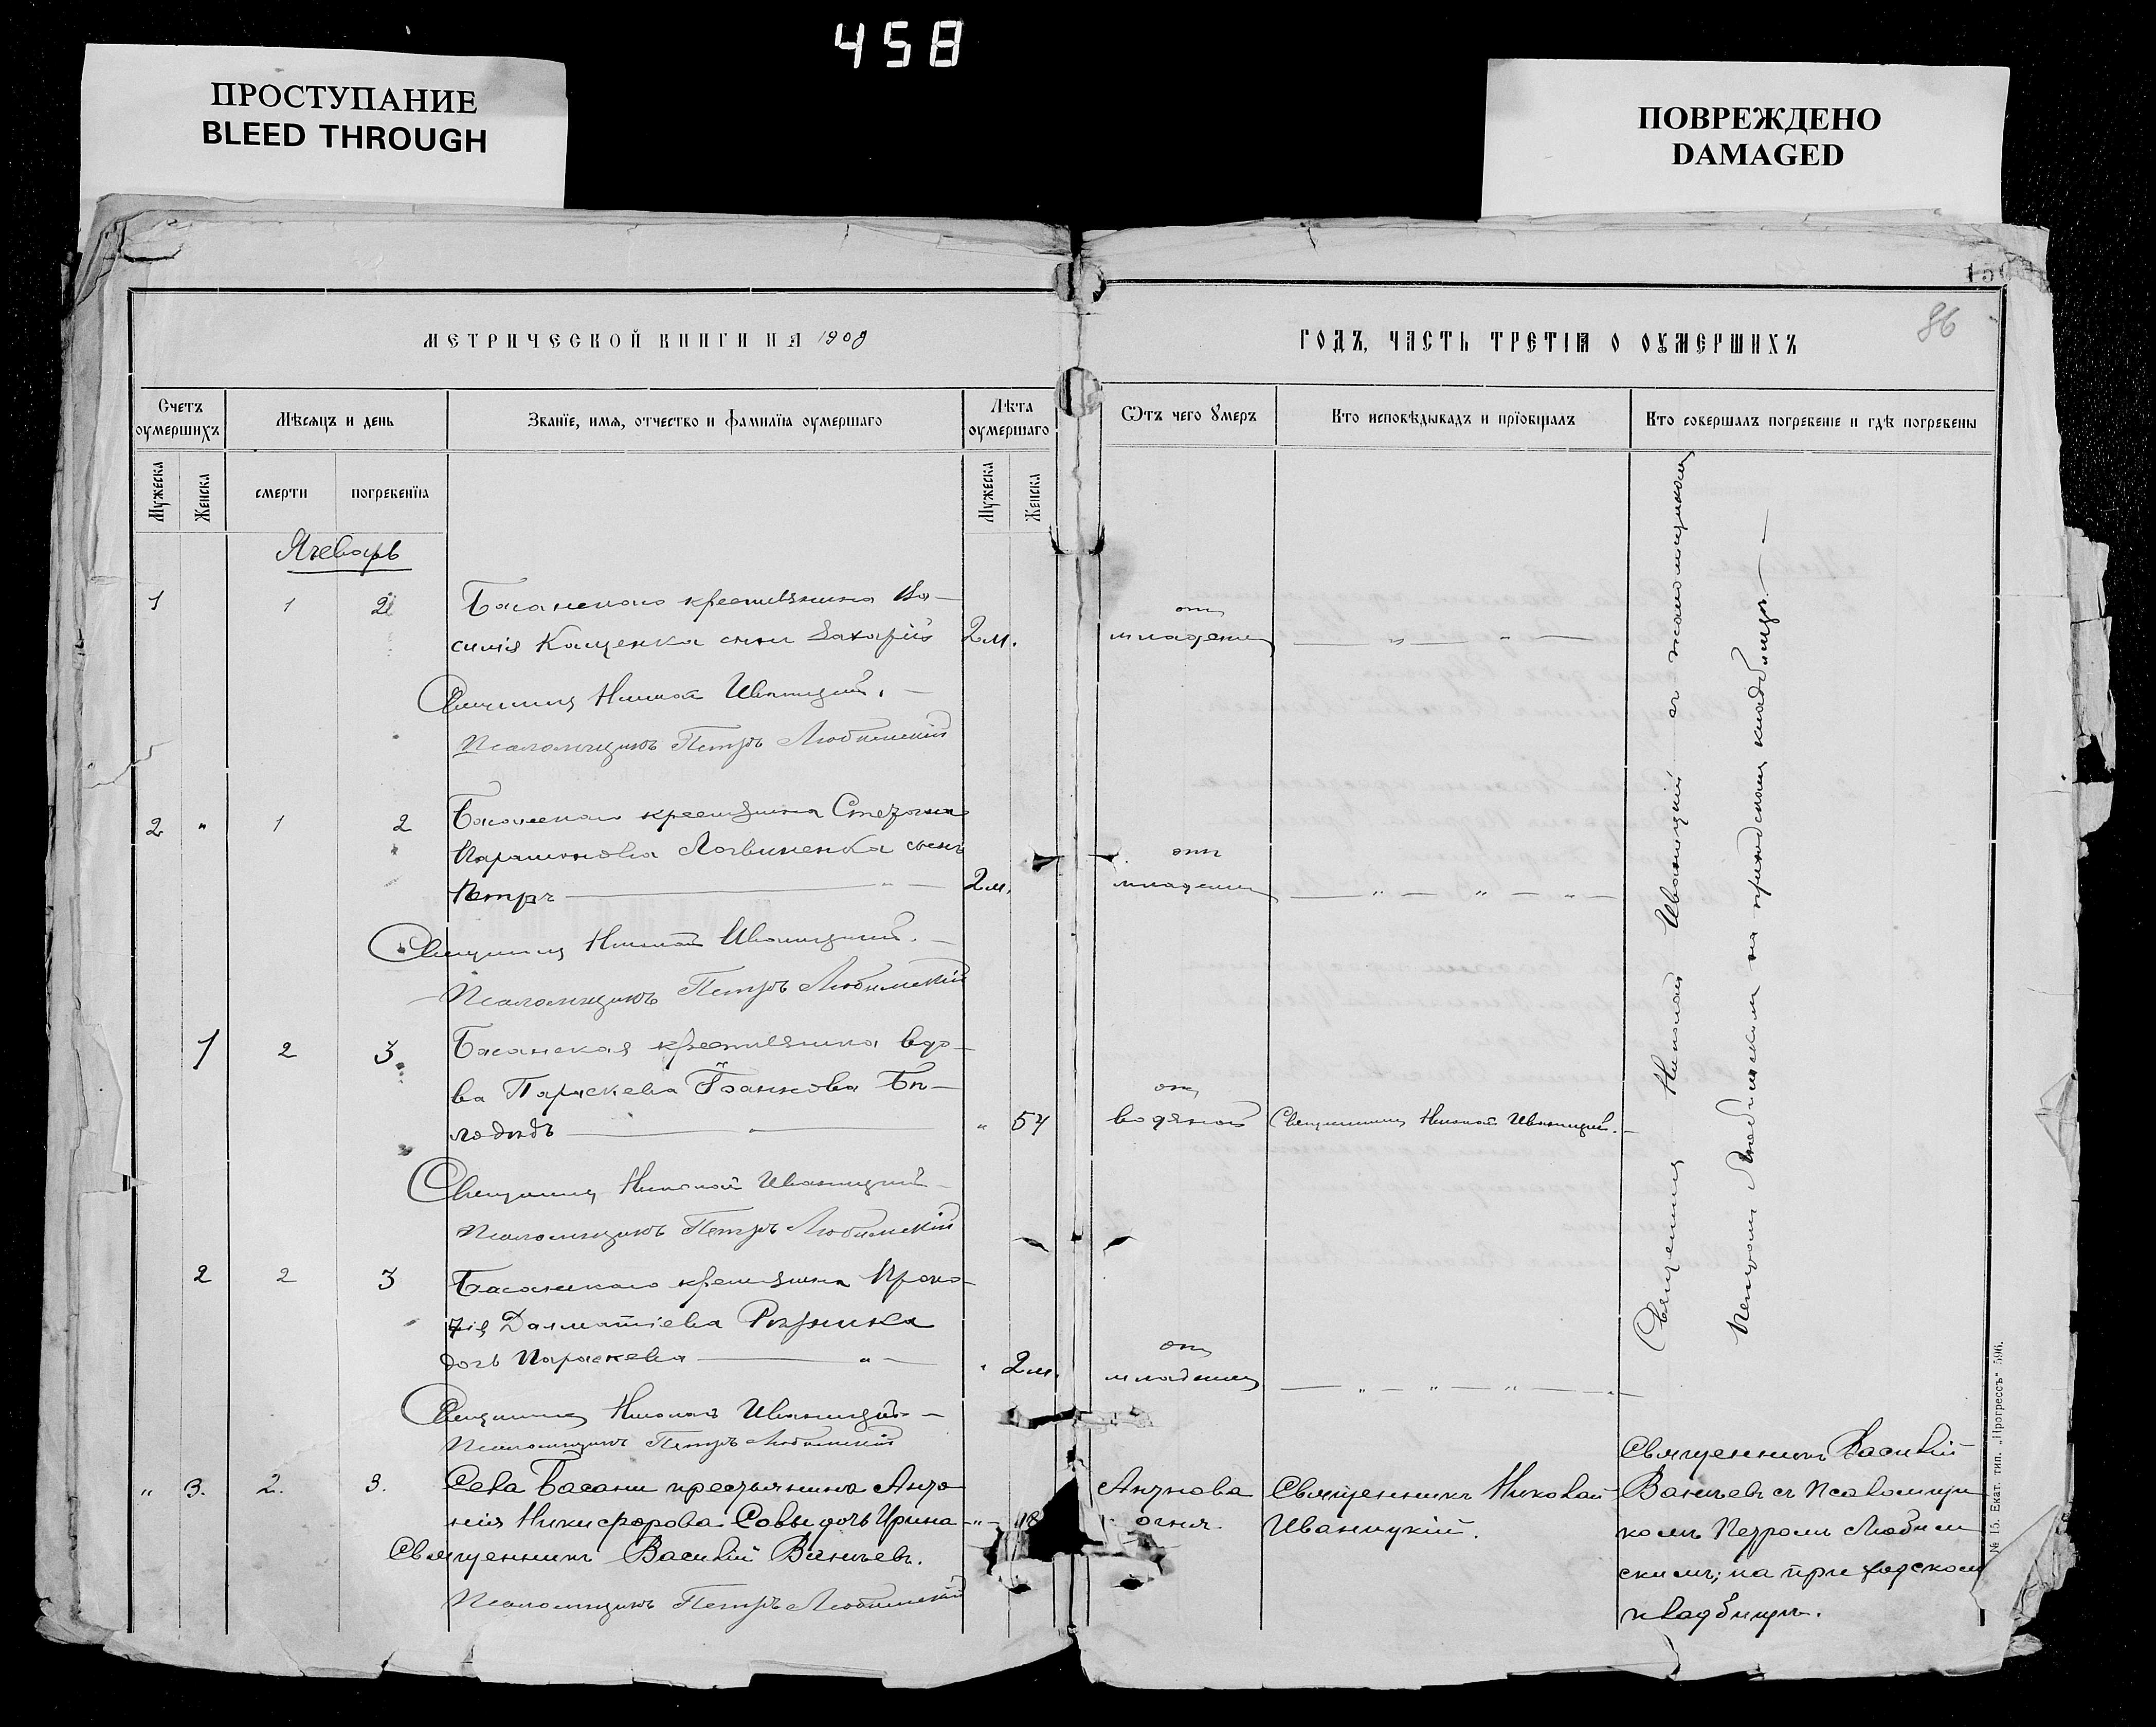 458
ПРОСТУПАНИЕ
BLEED THROUGH
ПОВРЕЖДЕНО
DAMAGED
86
МЕТРИЧЕСКОЙ КНИГИ НА 1909
ГОДЪ, ЧАСТЬ ТРЕТІЯ О ОУМЕРШИХЪ
Счетъ оумершихъ
Мѣсяцъ и день
Званіе, имя, отчество и фамиліа оумершаго
Лѣта оумершаго
Ѿтъ чего Умеръ
Кто исповѣдывадъ и пріобщалъ
Кто совершалъ погребеніе и гдѣ погребены
Мужеска
Женска
смерти
погребеніа
Мужеска
Женска
Январь
1 1 2 Басанскаго крестьянина Ва-
силія Кащенка сынъ Захарій 2 м.
отъ
младенч
Священникъ Николай Иваницкій.
Псаломщикъ Петръ Любимскій
2 " 1 2 Басанскаго крестьянина Стефана
Логвиненка сынъ
Петръ 2 м.
отъ
младенч
Священникъ Николай Иваницкій.
Псаломщикъ Петръ Любимскій
1 2 3 Басанская крестьянка вдо-
ва Параскева Бѣ-
лодѣдъ " 54
отъ
водяной Священникъ Николай Иваницкій.
Священникъ Николай Иваницкій
Псаломщикъ Петръ Любимскій
2 2 3 Басанскаго крестьянина Проко-
фія Далматіева Рѣзника
дочь Параскева " 2 м.
отъ
младенч
Священникъ Николай Иваницкій
Псаломщикъ Петръ Любимскій
" 3. 2. 3. Села Басани крестьянина Анто-
нія Никифорова Совы дочь Ирина 18
Антнова
огня.
Священникъ Николай
Иваницкій.
Священникъ Василій
съ Псаломщи
комъ Петромъ Любим
скимъ; на приходскомъ
кладбищѣ.
Священникъ Василій
Псаломщикъ Петръ Любимскій
Священникъ Николай Иваницкій съ псаломщикомъ
Петромъ Любимскимъ на приходскомъ кладбищѣ.
№ 15. Екат. тип. „Прогрессъ" 596.